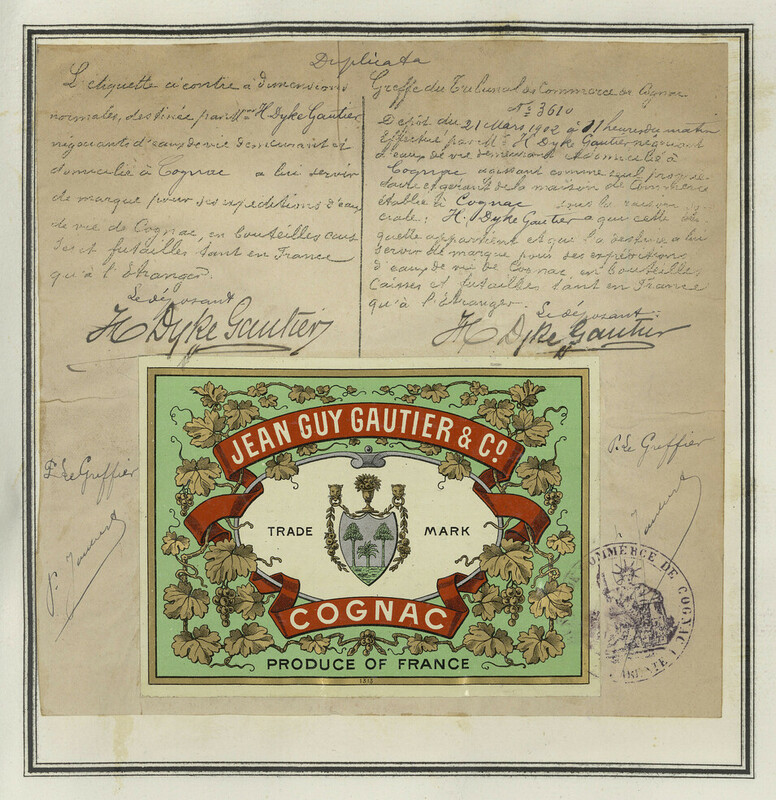 Duplicata
L'etiquette ci contre à dimensions
normales, destinée par Mr H. Dyke Gautier
négociant d'eaux de vie demeurant et
domicilié à Cognac a lui servir
de marque pour ses expeditions d'eaux
de vie de Cognac, en bouteilles cais
ses et futailles tant en France
qu'à l'étranger.
Le déposant
H Dyke Gautier
Greffe du Tribunal de Commerce de Cognac
No 3610
Dépôt du 21 Mars 1902 à 11 heures du matin
Effectué par Mr H. Dyke Gautier négociant
d'eaux de vie demeurant et domicilié à
Cognac agissant comme seul proprié
taire et gérant de la maison de Commerce
établie à Cognac sous la raison
ciale: H. Dyke Gautier que cette éti
quette appartient et que l'a destine a lui
servir de marque pour ses expéditions
d'eaux de vie de Cognac en bouteilles
Caisses et futailles tant en France
qu'à l'Étranger.
Le déposant:
H Dyke Gautier
P. Le Greffier
P. Le Greffier
JEAN GUY GAUTIER & Co
TRADE MARK
COGNAC
PRODUCE OF FRANCE
COMMERCE DE COGNAC